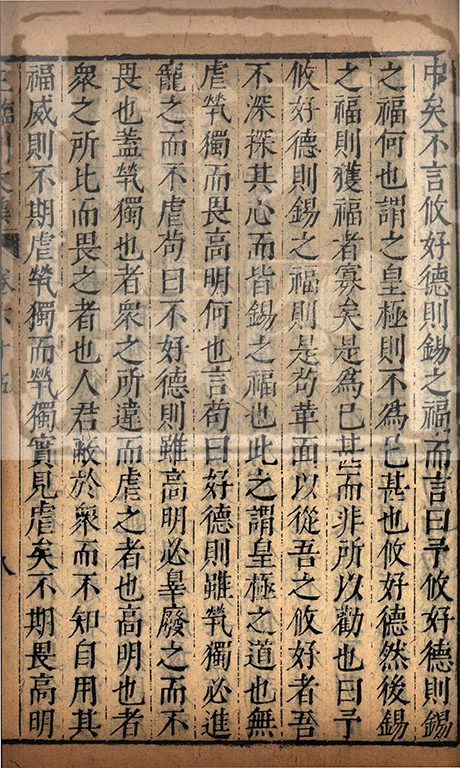 中矣不言攸好德則錫之福而言曰予攸好德則錫
之福何也謂之皇極則不為已甚也攸好德然後錫
之福則獲福者寡矣是為已甚而非所以勸也曰予
攸好德則錫之福則是苟革面以從吾之攸好者吾
不深探其心而皆錫之福也此之謂皇極之道也無
虐煢獨而畏高明何也言苟曰好德則雖煢獨必進
寵之而不虐苟曰不好德則雖高明必辠廢之而不
畏也蓋煢獨也者衆之所違而虐之者也高明也者
衆之所比而畏之者也人君蔽於衆而不知自用其
福威則不期虐煢獨而煢獨實見虐矣不期畏高明
八